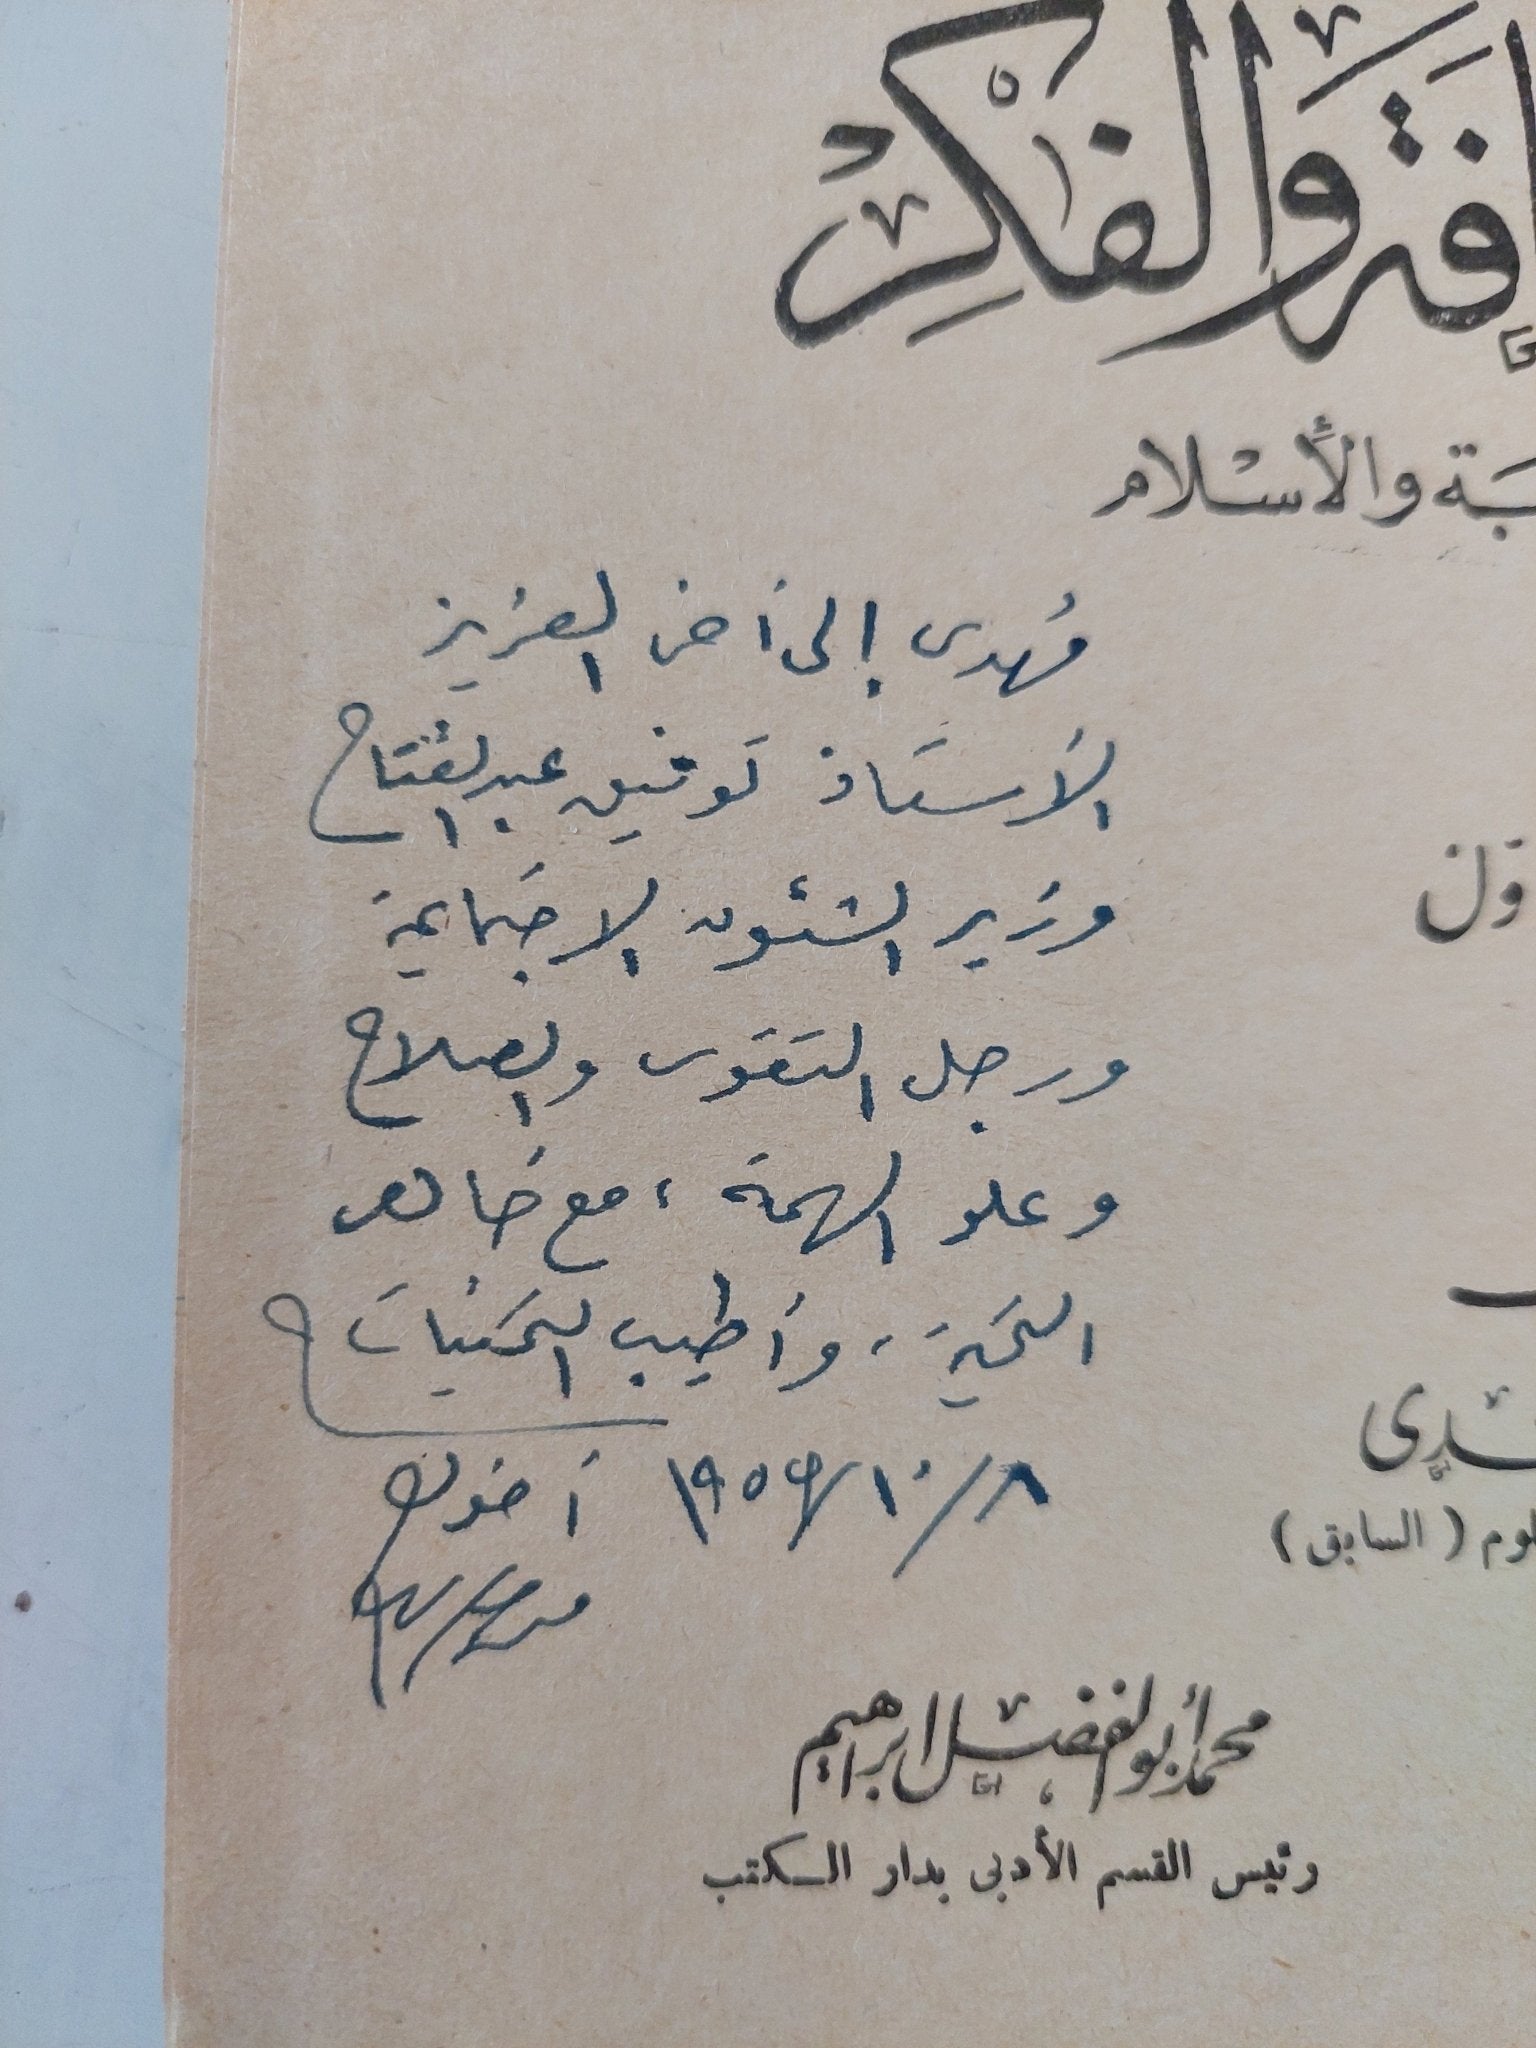 والفكر
والأسلام
مُهدى إلى أخى العزيز
الأستاذ توفيق عبد الفتاح
وزير الشئون الاجتماعية
ورجل التقوى والصلاح
وعلو الهمة، مع خالص
التحية، وأطيب التحيات
٨/١٠/١٩٥٩ أخوك
(السابق)
محمد أبو الفضل إبراهيم
رئيس القسم الأدبى بدار الكتب